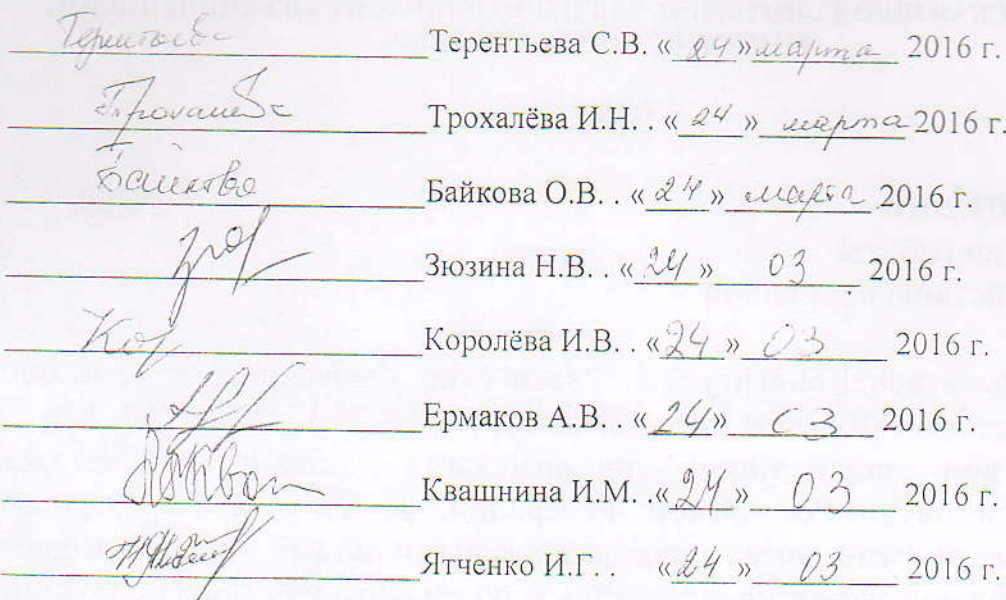 Терентьева Терентьева С.В. « 24 » марта 2016 г.
Трохалёва Трохалёва И.Н. . « 24 » марта 2016 г.
Байкова О.В. . « 24 » марта 2016 г.
Зюзина Н.В. . « 24 » 03 2016 г.
Кор Королёва И.В. . « 24 » 03 2016 г.
Ермаков А.В. « 24 » 03 2016 г.
Квашнина И.М. . « 24 » 03 2016 г.
Ятченко И.Г . . « 24 » 03 2016 г.